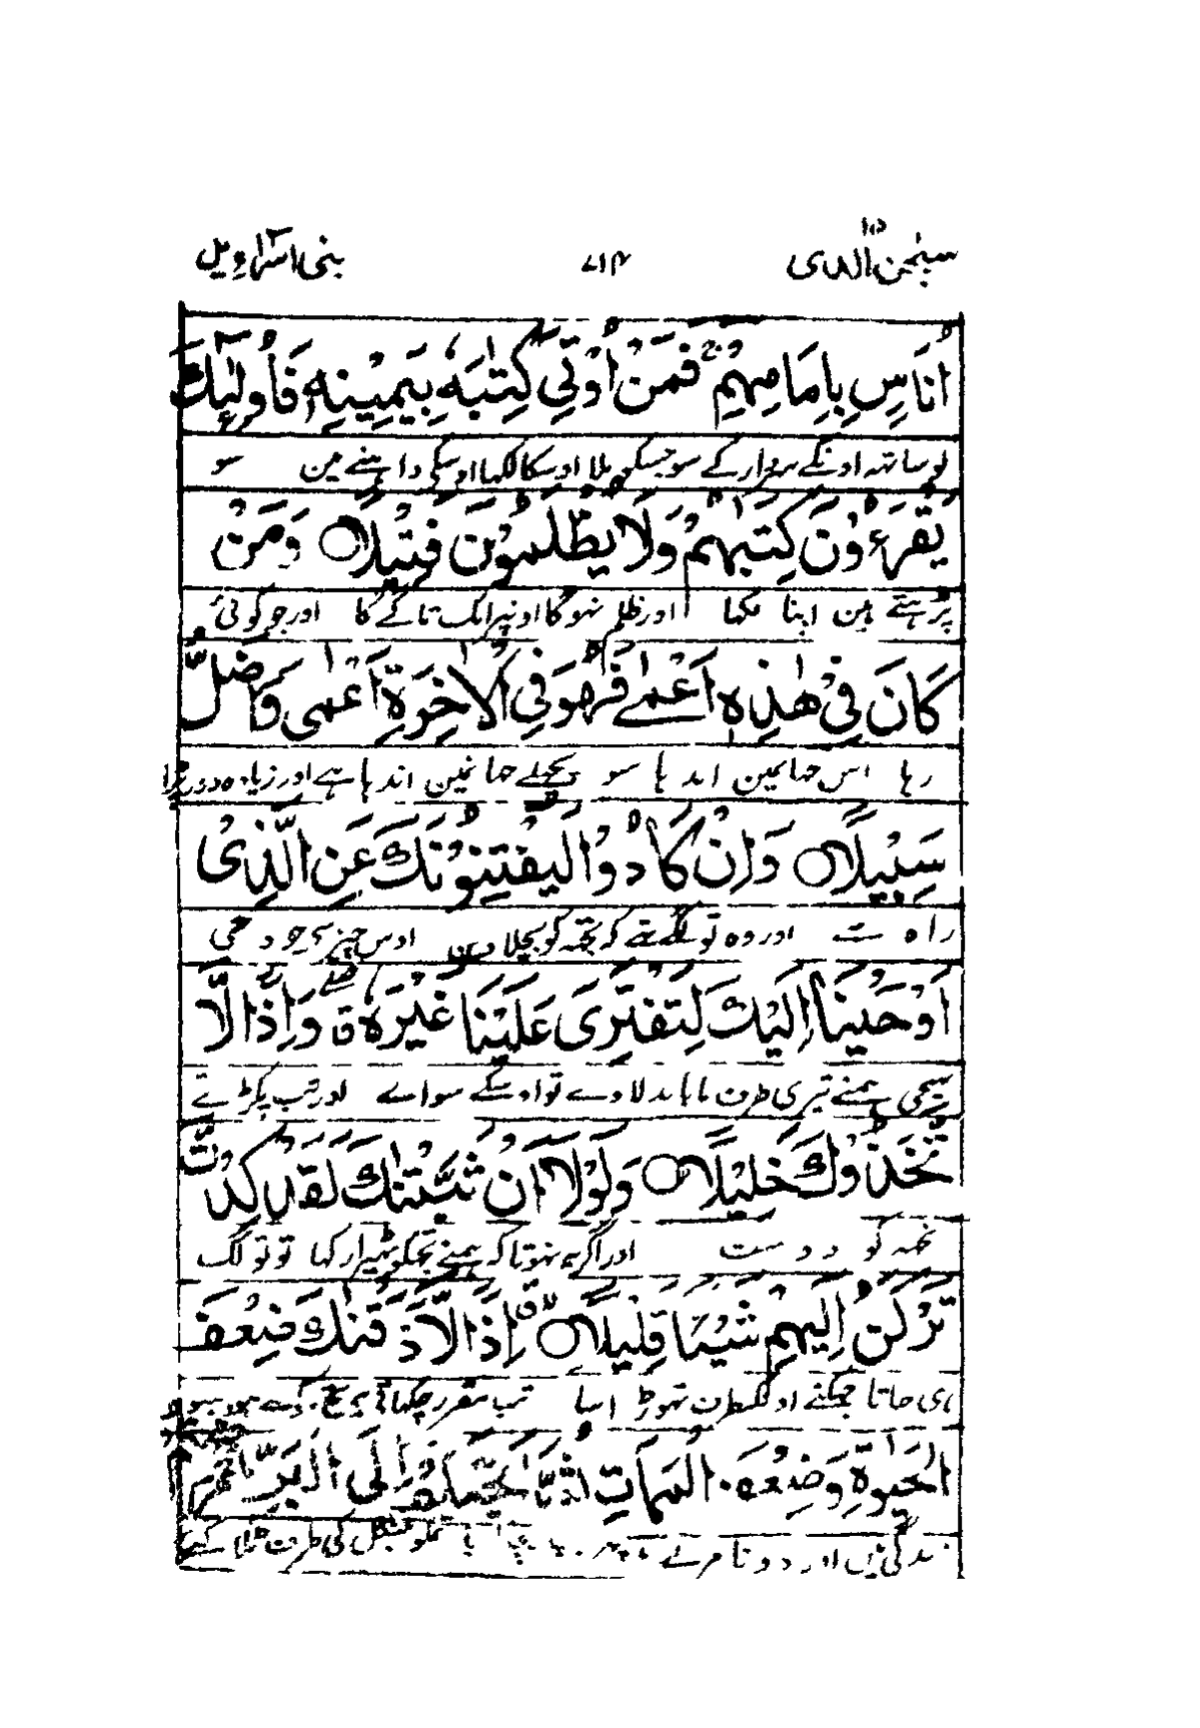 سبحن الذی ۱۵ ۷۱۴ بنی اسرآءیل
اُنَاسٍ بِاِمَامِهِمْ ۚ فَمَنْ اُوْتِیَ كِتٰبَهٗ بِیَمِیْنِهٖ فَاُولٰٓئِكَ
لو ساتهہ اونکے سردار کے سو جسکو ملا اوسکا لکھا اوسکی داہنے مین سو
یَقْرَءُوْنَ كِتٰبَهُمْ وَلَا یُظْلَمُوْنَ فَتِیْلًا ○ وَمَنْ
پڑہتے ہین اپنا لکھا اور ظلم نہوگا اونپر ایک تاگے کا اور جو کوئی
كَانَ فِیْ هٰذِهٖٓ اَعْمٰے فَهُوَ فِی الْاٰخِرَةِ اَعْمٰی وَاَضَلُّ
رہا اس جہانمین اندہا سو پچھلے جہانمین اندہا ہے اور زیادہ دور پڑا
سَبِیْلًا ○ وَاِنْ كَادُوْا لَیَفْتِنُوْنَكَ عَنِ الَّذِیْٓ
راہ سے اور وہ تو لگے تھے کہ تجھہ کو بچلا دین اوس چیز سے جو وحی
اَوْحَیْنَآ اِلَیْكَ لِتَفْتَرِیَ عَلَیْنَا غَیْرَهٗ ق صلے وَاِذًا لَّا
بھیجی ہمنے تیری طرف تا باندلاوے تو اوسکے سواے اور تب پکڑتے
تَّخَذُوْكَ خَلِیْلًا ○ وَلَوْلَآ اَنْ ثَبَّتْنٰكَ لَقَدْ كِدْتَّ
تجھہ کو دوست اور اگر یہ نہوتا کہ ہمنے تجھکو ٹھیرا رکھا تو تو لگ
تَرْكَنُ اِلَیْهِمْ شَیْئًا قَلِیْلًا ○ اِذًا لَّاَذَقْنٰكَ ضِعْفَ
ہی جاتا جھکنے اونکیطرف تھوڑا سا تب مقرر چکھاتے
الْحَیٰوةِ وَضِعْفَ الْمَمَاتِ اِلَی الْبَرِّ
زندگی مین اور دونا مرنے جنگل کی طرف